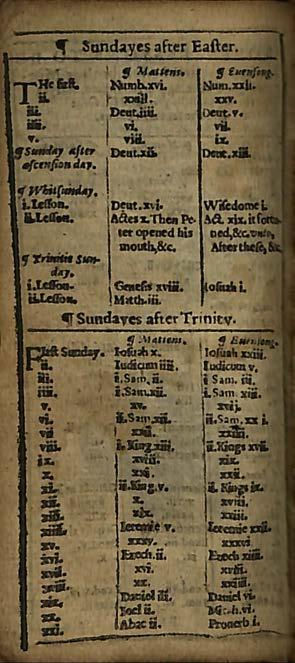 ¶ Sundayes after Easter.
¶ Mattens. ¶ Euensong.
THe first. Numb.xvi. Num.xxii.
ii. xxiii. xxv.
iii. Deut.iiii. Deut. v.
iiii. vi. vii.
v. viii. ix.
¶ Sunday after Deut.xii. Deut. xiii.
ascension day.
¶ Whitsunday.
i. Lesson. Deut. xvi. Wisedome i.
ii. Lesson. Actes x. Then Pe- Act. xix. it fortu-
ter opened his ned, &c. vnto,
mouth, &c. After these, &c
¶ Trinitie Sun-
day.
i. Lesson. Genesis xviii. Iosuah i.
ii. Lesson. Math. iii.
¶ Sundayes after Trinity.
¶ Mattens. ¶ Euensong.
First Sunday. Iosuah x. Iosuah xxiii.
ii. Iudicum iiii. Iudicum v.
iii. i. Sam. ii. i Sam. iii.
iiii. i. Sam.xii. i. Sam. xiii.
v. xv. xvij.
vi. ii. Sam.xii. ii. Sam. xx i.
vii xxii. xxiiii.
viii. i. King.xiii. i. Kings xvii.
ix. xviii. xix.
x. xxi. xxii.
xi. ii. King.v. ii. Kings ix.
xii. x. xviii.
xiii. xix. xxiii.
xiiii. Ieremie v. Ieremie xxii.
xv. xxxv. xxxvi
xvi. Ezech. ii. Ezech xiiii.
xvii. xvi. xviii.
xviii. xx. xxiiii.
xix. Daniel iii. Daniel vi.
xx. Ioel ii. Mich. vi.
xxi. Abac ii. Prouerb i.